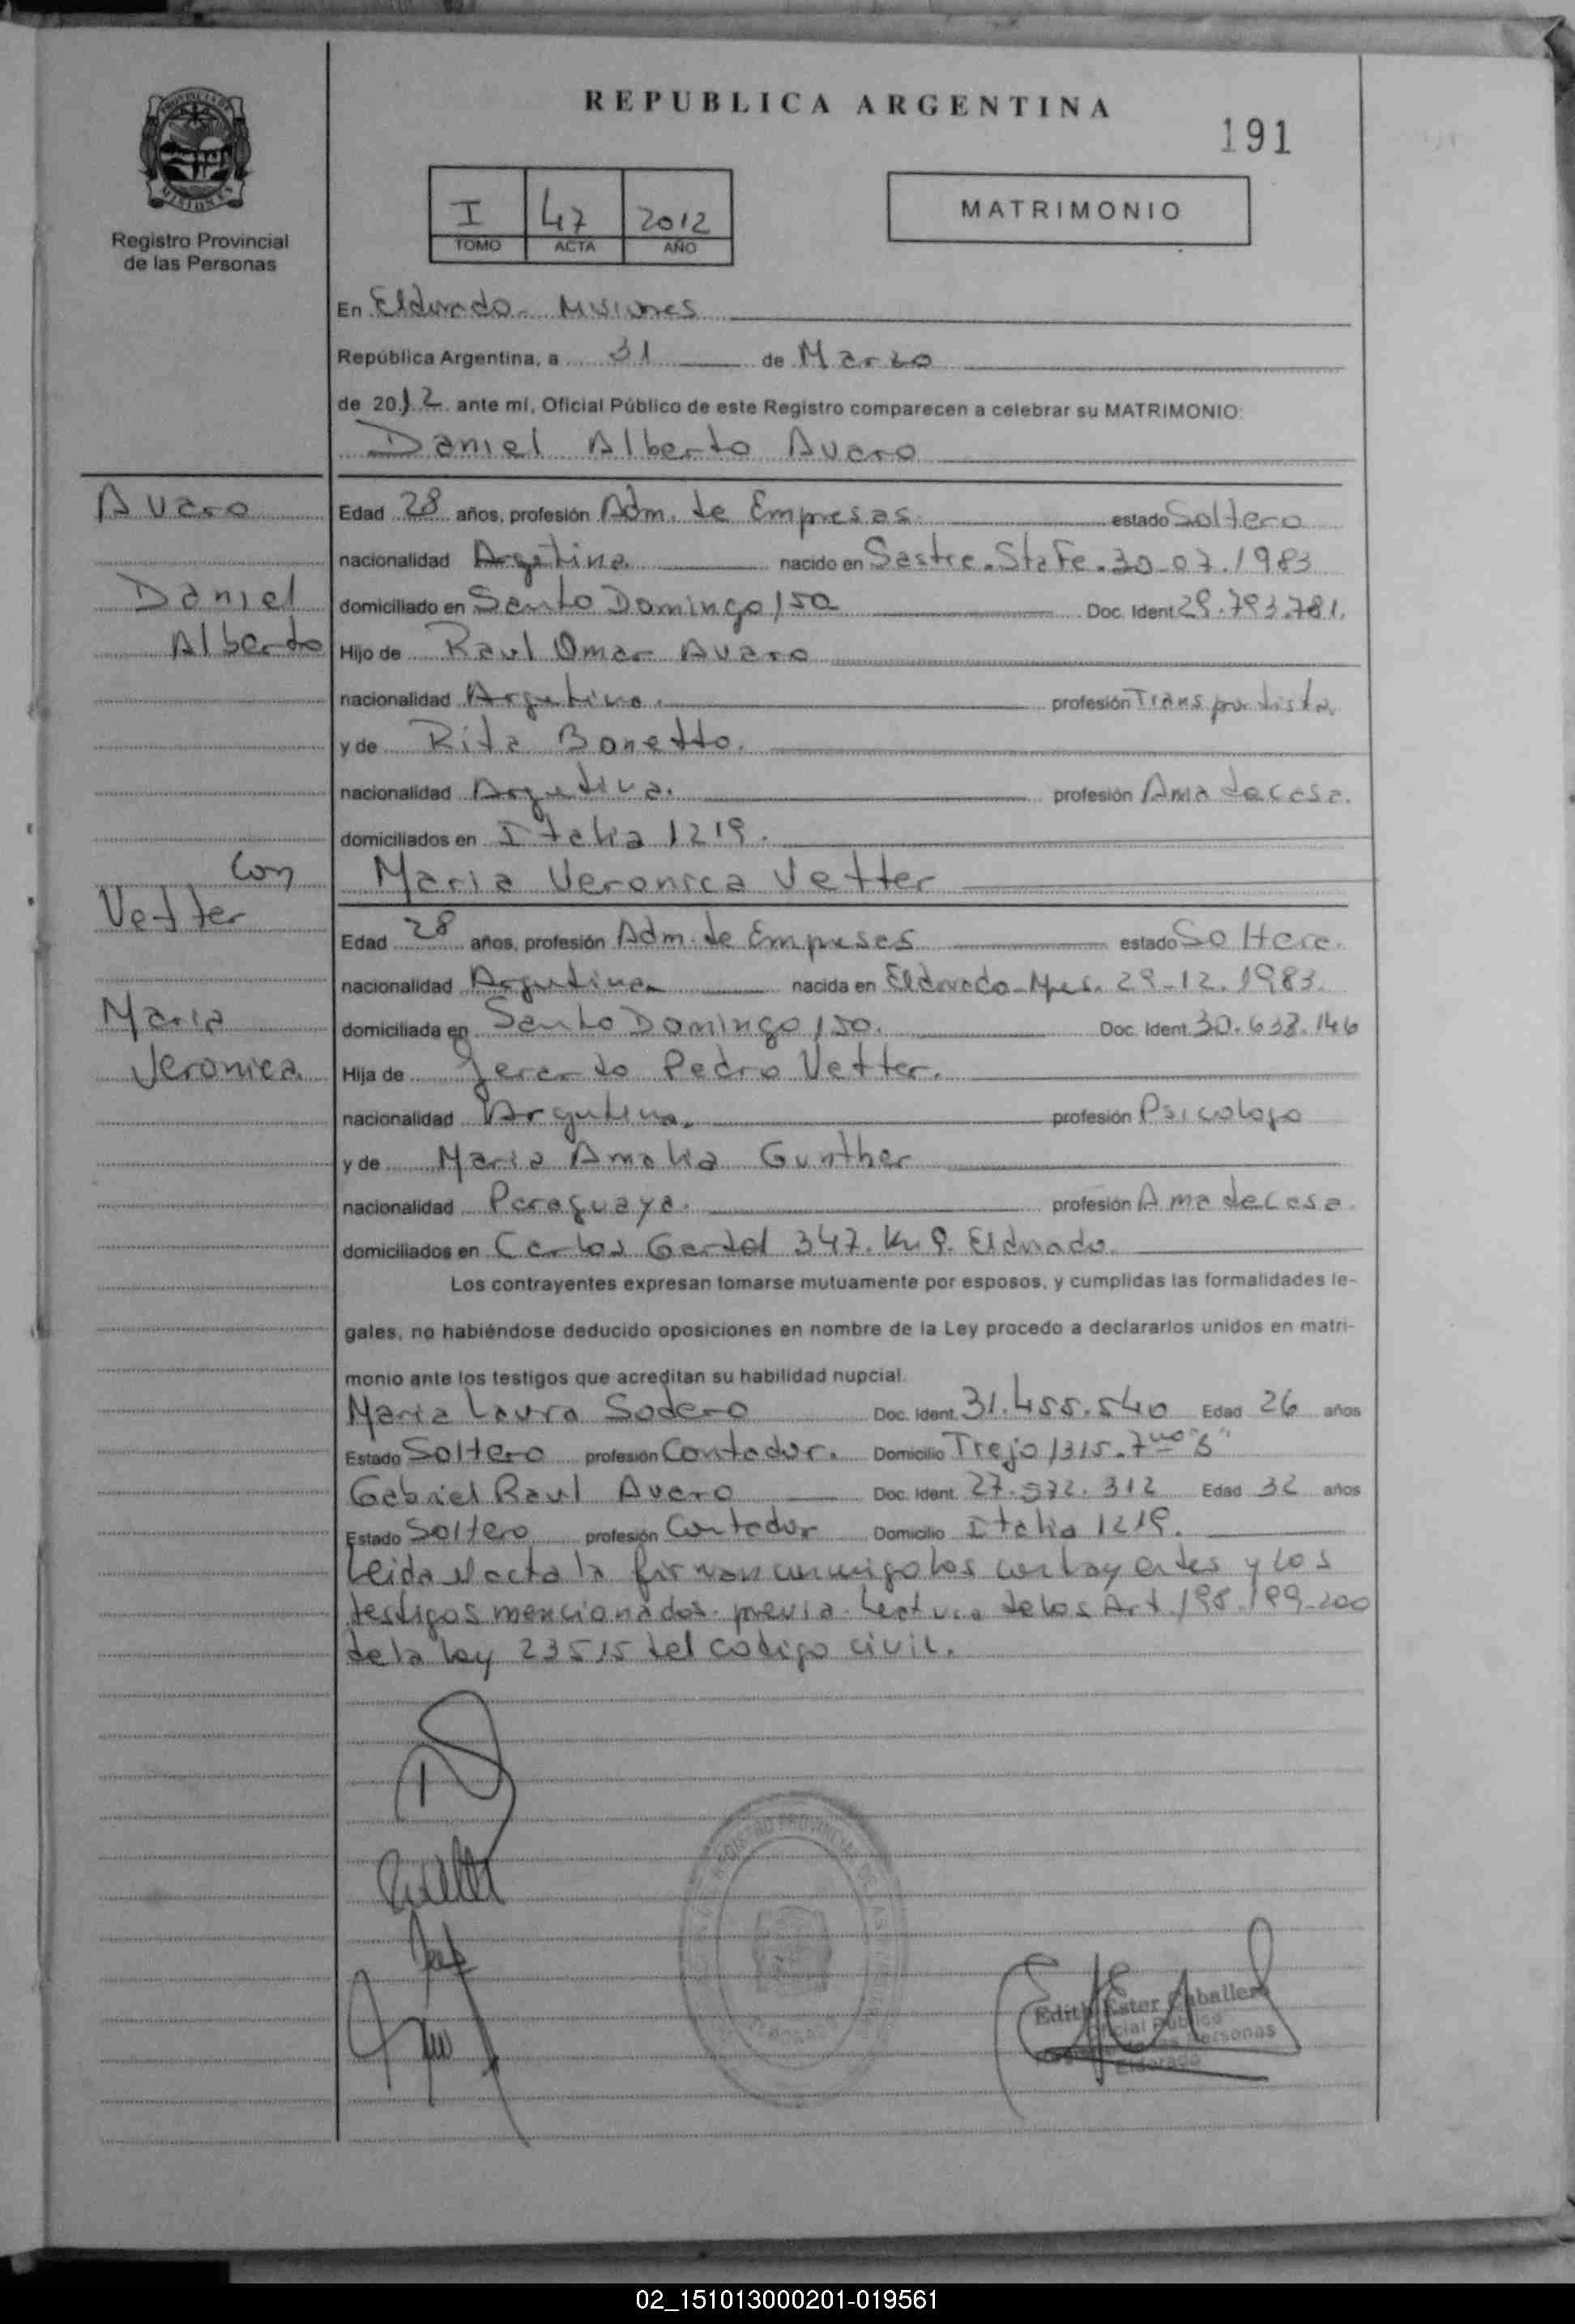 REPUBLICA ARGENTINA
191
PROVINCIA DE MISIONES
Registro Provincial
de las Personas
I 47 2012
TOMO ACTA AÑO
MATRIMONIO
En Eldorado - Misiones
República Argentina, a 31 de Marzo
de 2012 ante mí, Oficial Público de este Registro comparecen a celebrar su MATRIMONIO:
Daniel Alberto Avaro
Avaro
Daniel
Alberto
Edad 28 años, profesión Adm. de Empresas estado Soltero
nacionalidad Argetina nacido en Sastre. Sta Fe. 30-07.1983
domiciliado en Santo Domingo 150 Doc. Ident 29.793.781.
Hijo de Raul Omar Avaro
nacionalidad Argentina. profesión Transportista.
y de Rita Bonetto.
nacionalidad Argentina. profesión Ama de casa.
domiciliados en Italia 1219.
Con
Vetter
Maria
Veronica
Maria Veronica Vetter
Edad 28 años, profesión Adm. de Empresas estado Soltera.
nacionalidad Argentina nacida en Eldorado - Mnes. 29-12.1983.
domiciliada en Santo Domingo 150. Doc. Ident. 30.638.146
Hija de Jerardo Pedro Vetter.
nacionalidad Argentina. profesión Psicologo
y de Maria Amalia Gunther
nacionalidad Paraguaya. profesión Ama de Casa.
domiciliados en Carlos 347. Km 9. Eldorado.
Los contrayentes expresan tomarse mutuamente por esposos, y cumplidas las formalidades le-
gales, no habiéndose deducido oposiciones en nombre de la Ley procedo a declararlos unidos en matri-
monio ante los testigos que acreditan su habilidad nupcial.
Maria Laura Sodero Doc. Ident. 31.455.540 Edad 26 años
Estado Soltero profesión Contador. Domicilio Trejo 1315.
Gabriel Raul Avaro Doc. Ident. 27.572.312 Edad 32 años
Estado Soltero profesión Contador Domicilio Italia 1219.
Leida el acta la firman conmigo los contrayentes y los
testigos mencionados previa lectura de los Art. 198.199-200
de la ley 23515 del codigo civil.
REGISTRO PROVINCIAL DE LAS
ELDORADO
Edith Ester Caballero
Oficial Público
Personas
Eldorado
02_151013000201-019561